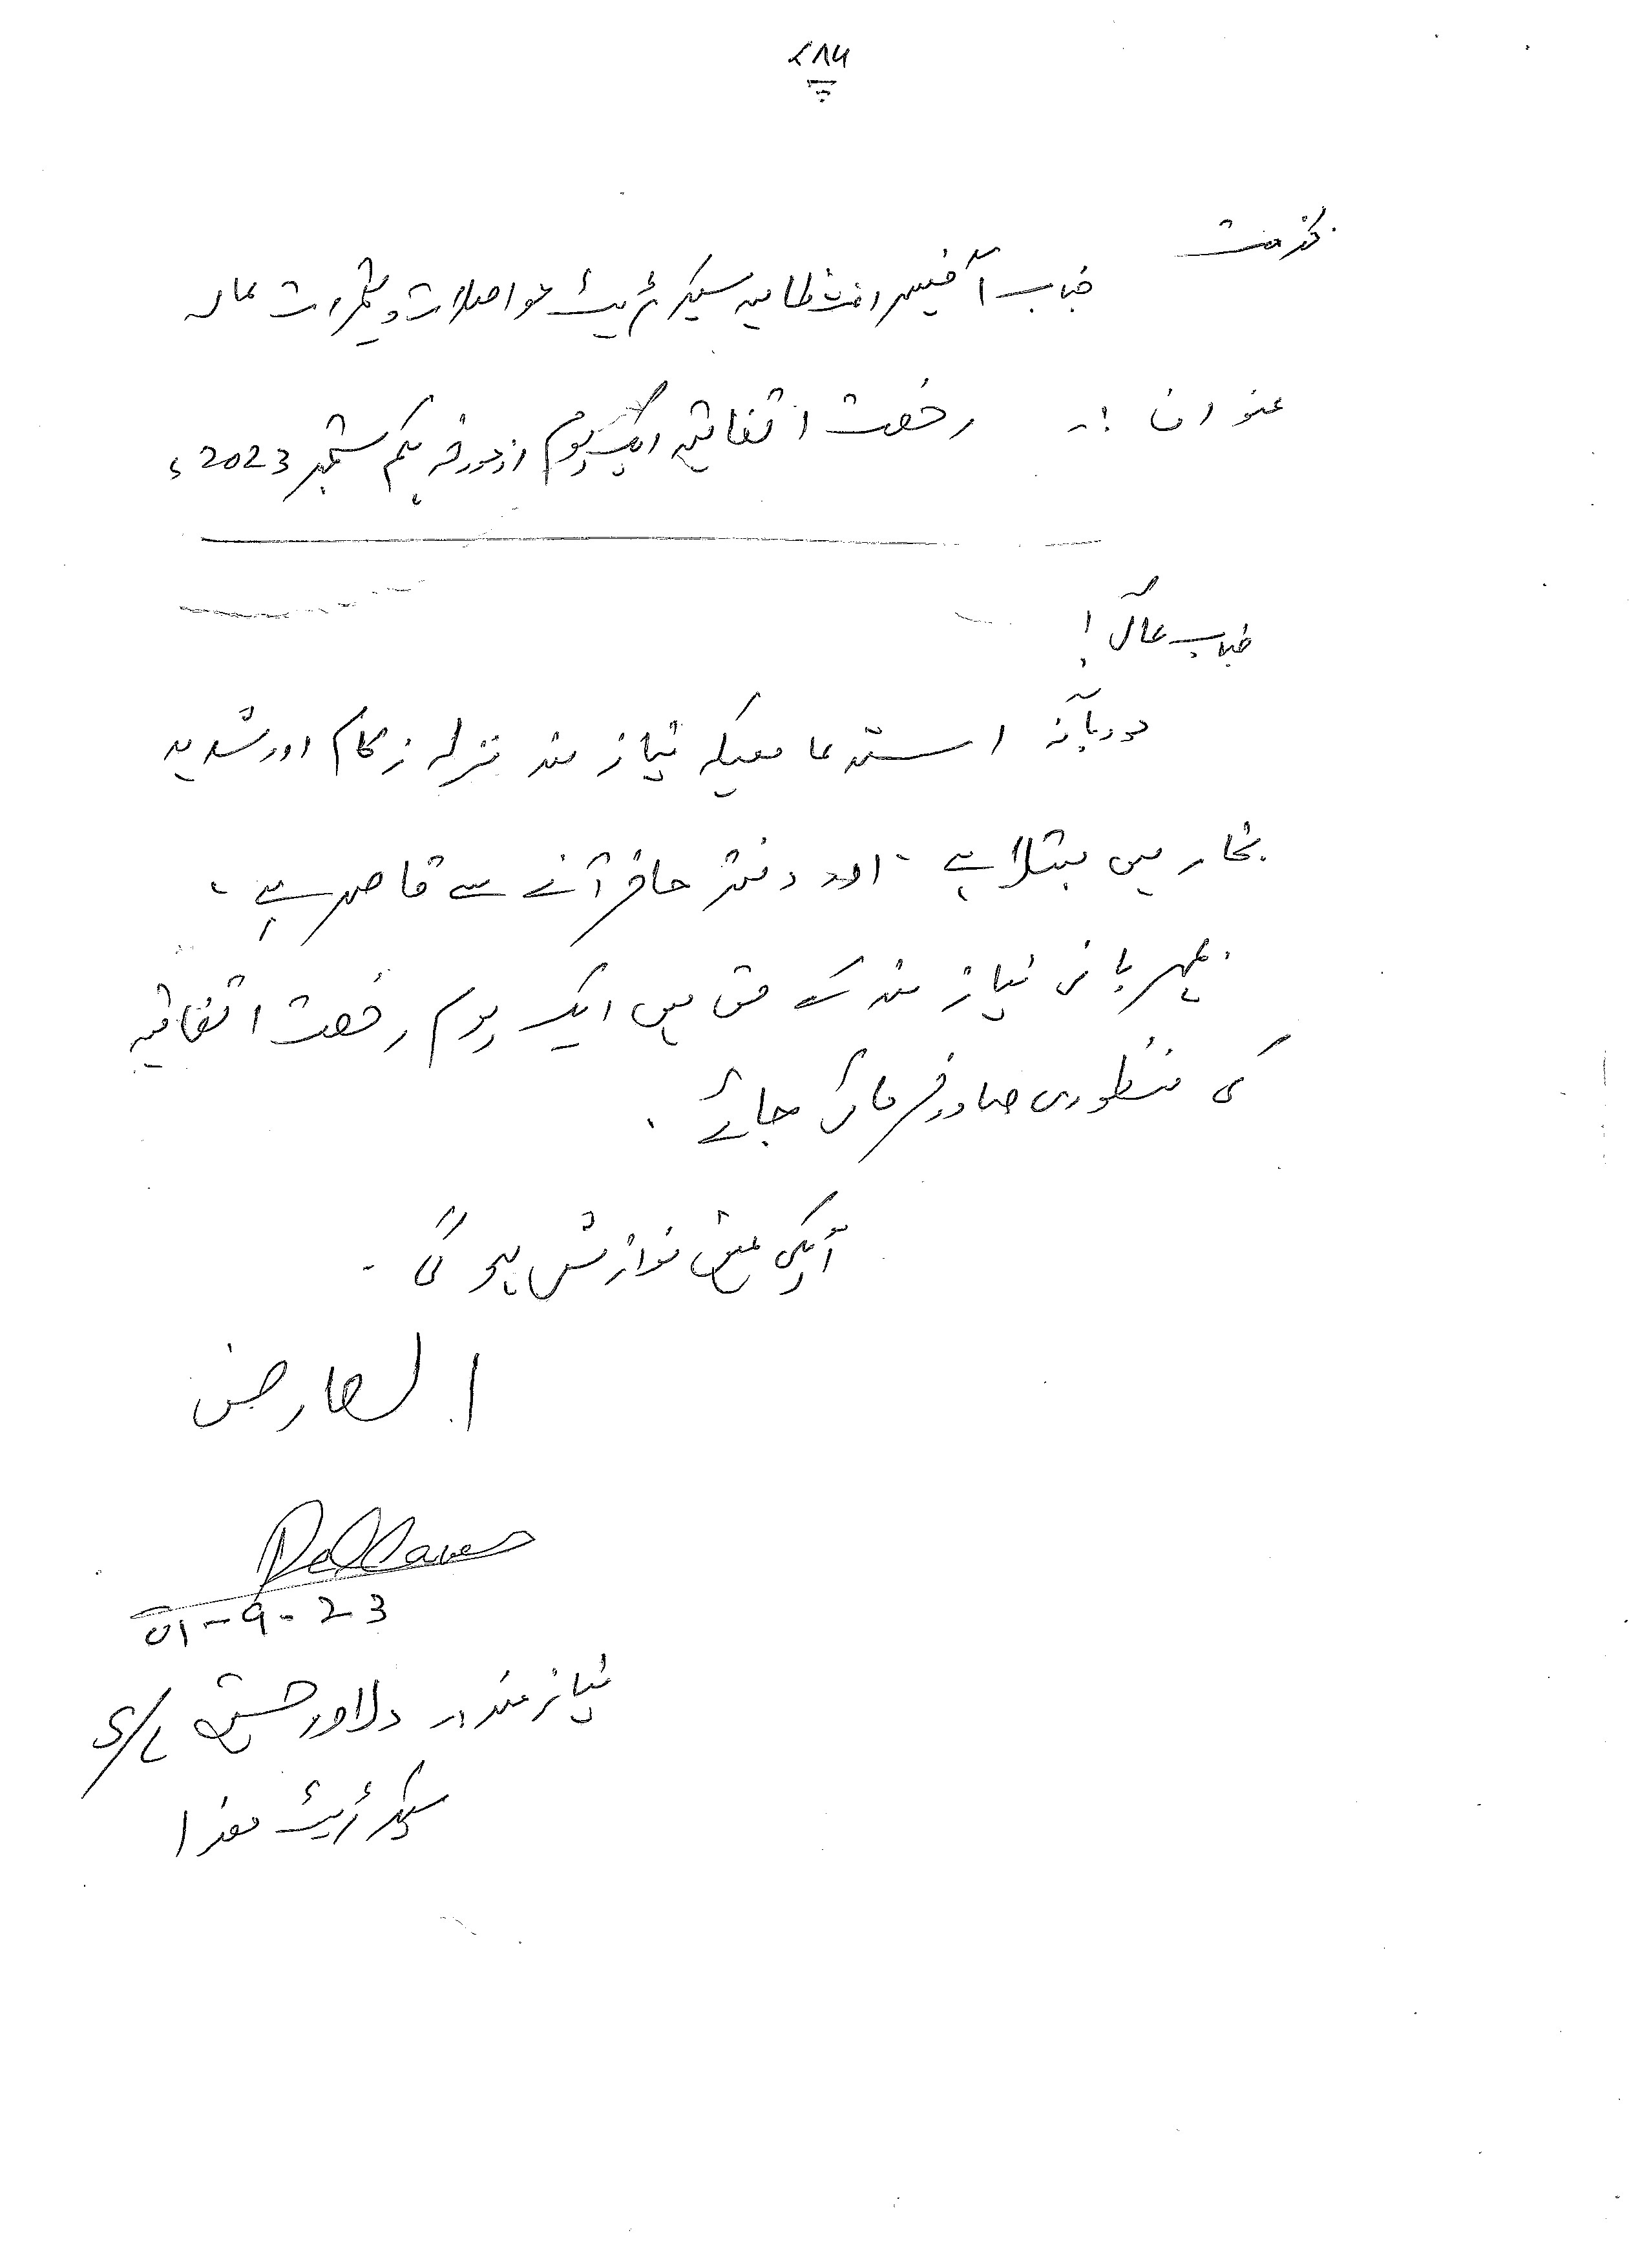 ۷۸۶
بخدمت
جناب آفیسر انتظامیہ سیکرٹریٹ مواصلات و تعمیرات عامہ
عنوان :۔ رخصت اتفاقیہ ایک یوم از مورخہ یکم ستمبر 2023ء
جناب عالی !
مودبانہ استدعا ہیکہ نیاز مند نزلہ زکام اور شدید
بخار میں مبتلا ہے ۔ اور دفتر حاضر آنے سے قاصر ہے ۔
بمہربانی نیاز مند کے حق میں ایک یوم رخصت اتفاقیہ
کی منظوری صادر فرمائی جائے ۔
آپکی عین نوازش ہو گی ۔
العارض
01-9-23
نیاز مند :۔ دلاور حسین S/C
سیکرٹریٹ ھذا